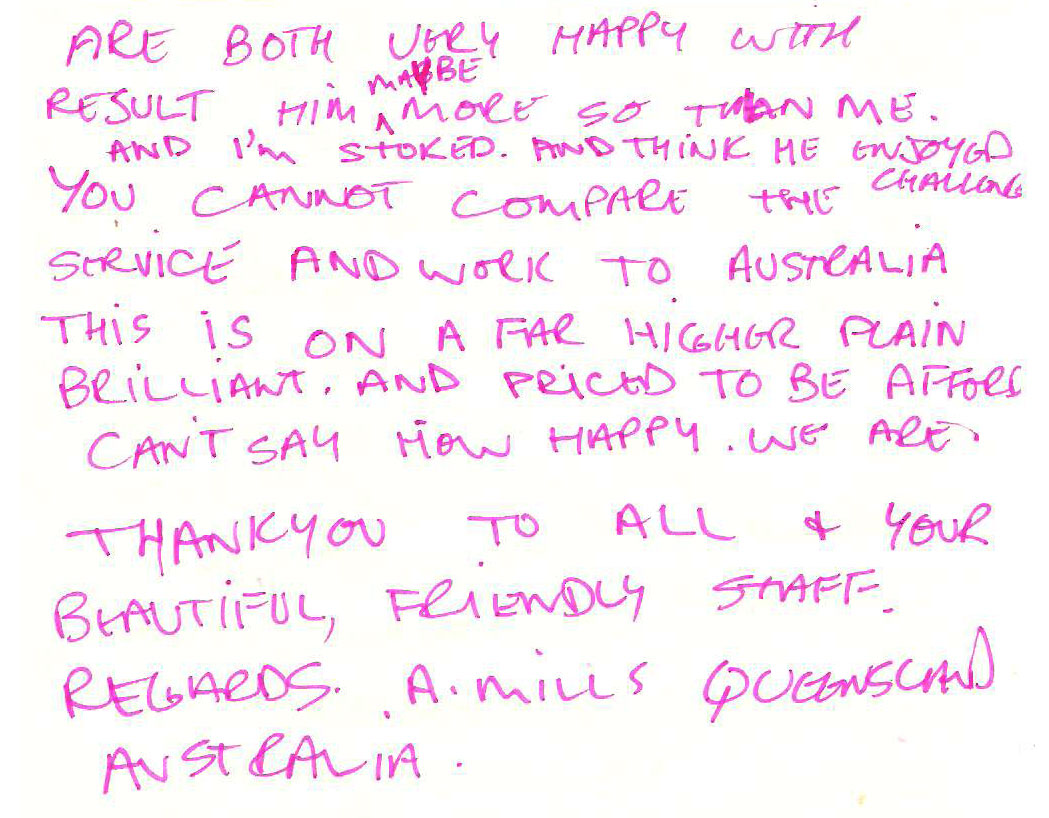 ARE BOTH VERY HAPPY WITH
RESULT HIM MAYBE MORE SO THAN ME.
AND I'm STOKED. AND THINK HE ENJOYED
CHALLENGE
YOU CANNOT COMPARE THE
SERVICE AND WORK TO AUSTRALIA
THIS IS ON A FAR HIGHER PLAIN
BRILLIANT. AND PRICED TO BE AFFORD
CAN'T SAY HOW HAPPY. WE ARE.
THANKYOU TO ALL & YOUR
BEAUTIFUL, FRIENDLY STAFF.
REGARDS. A. MILLS QUEENSLAND
AUSTRALIA.